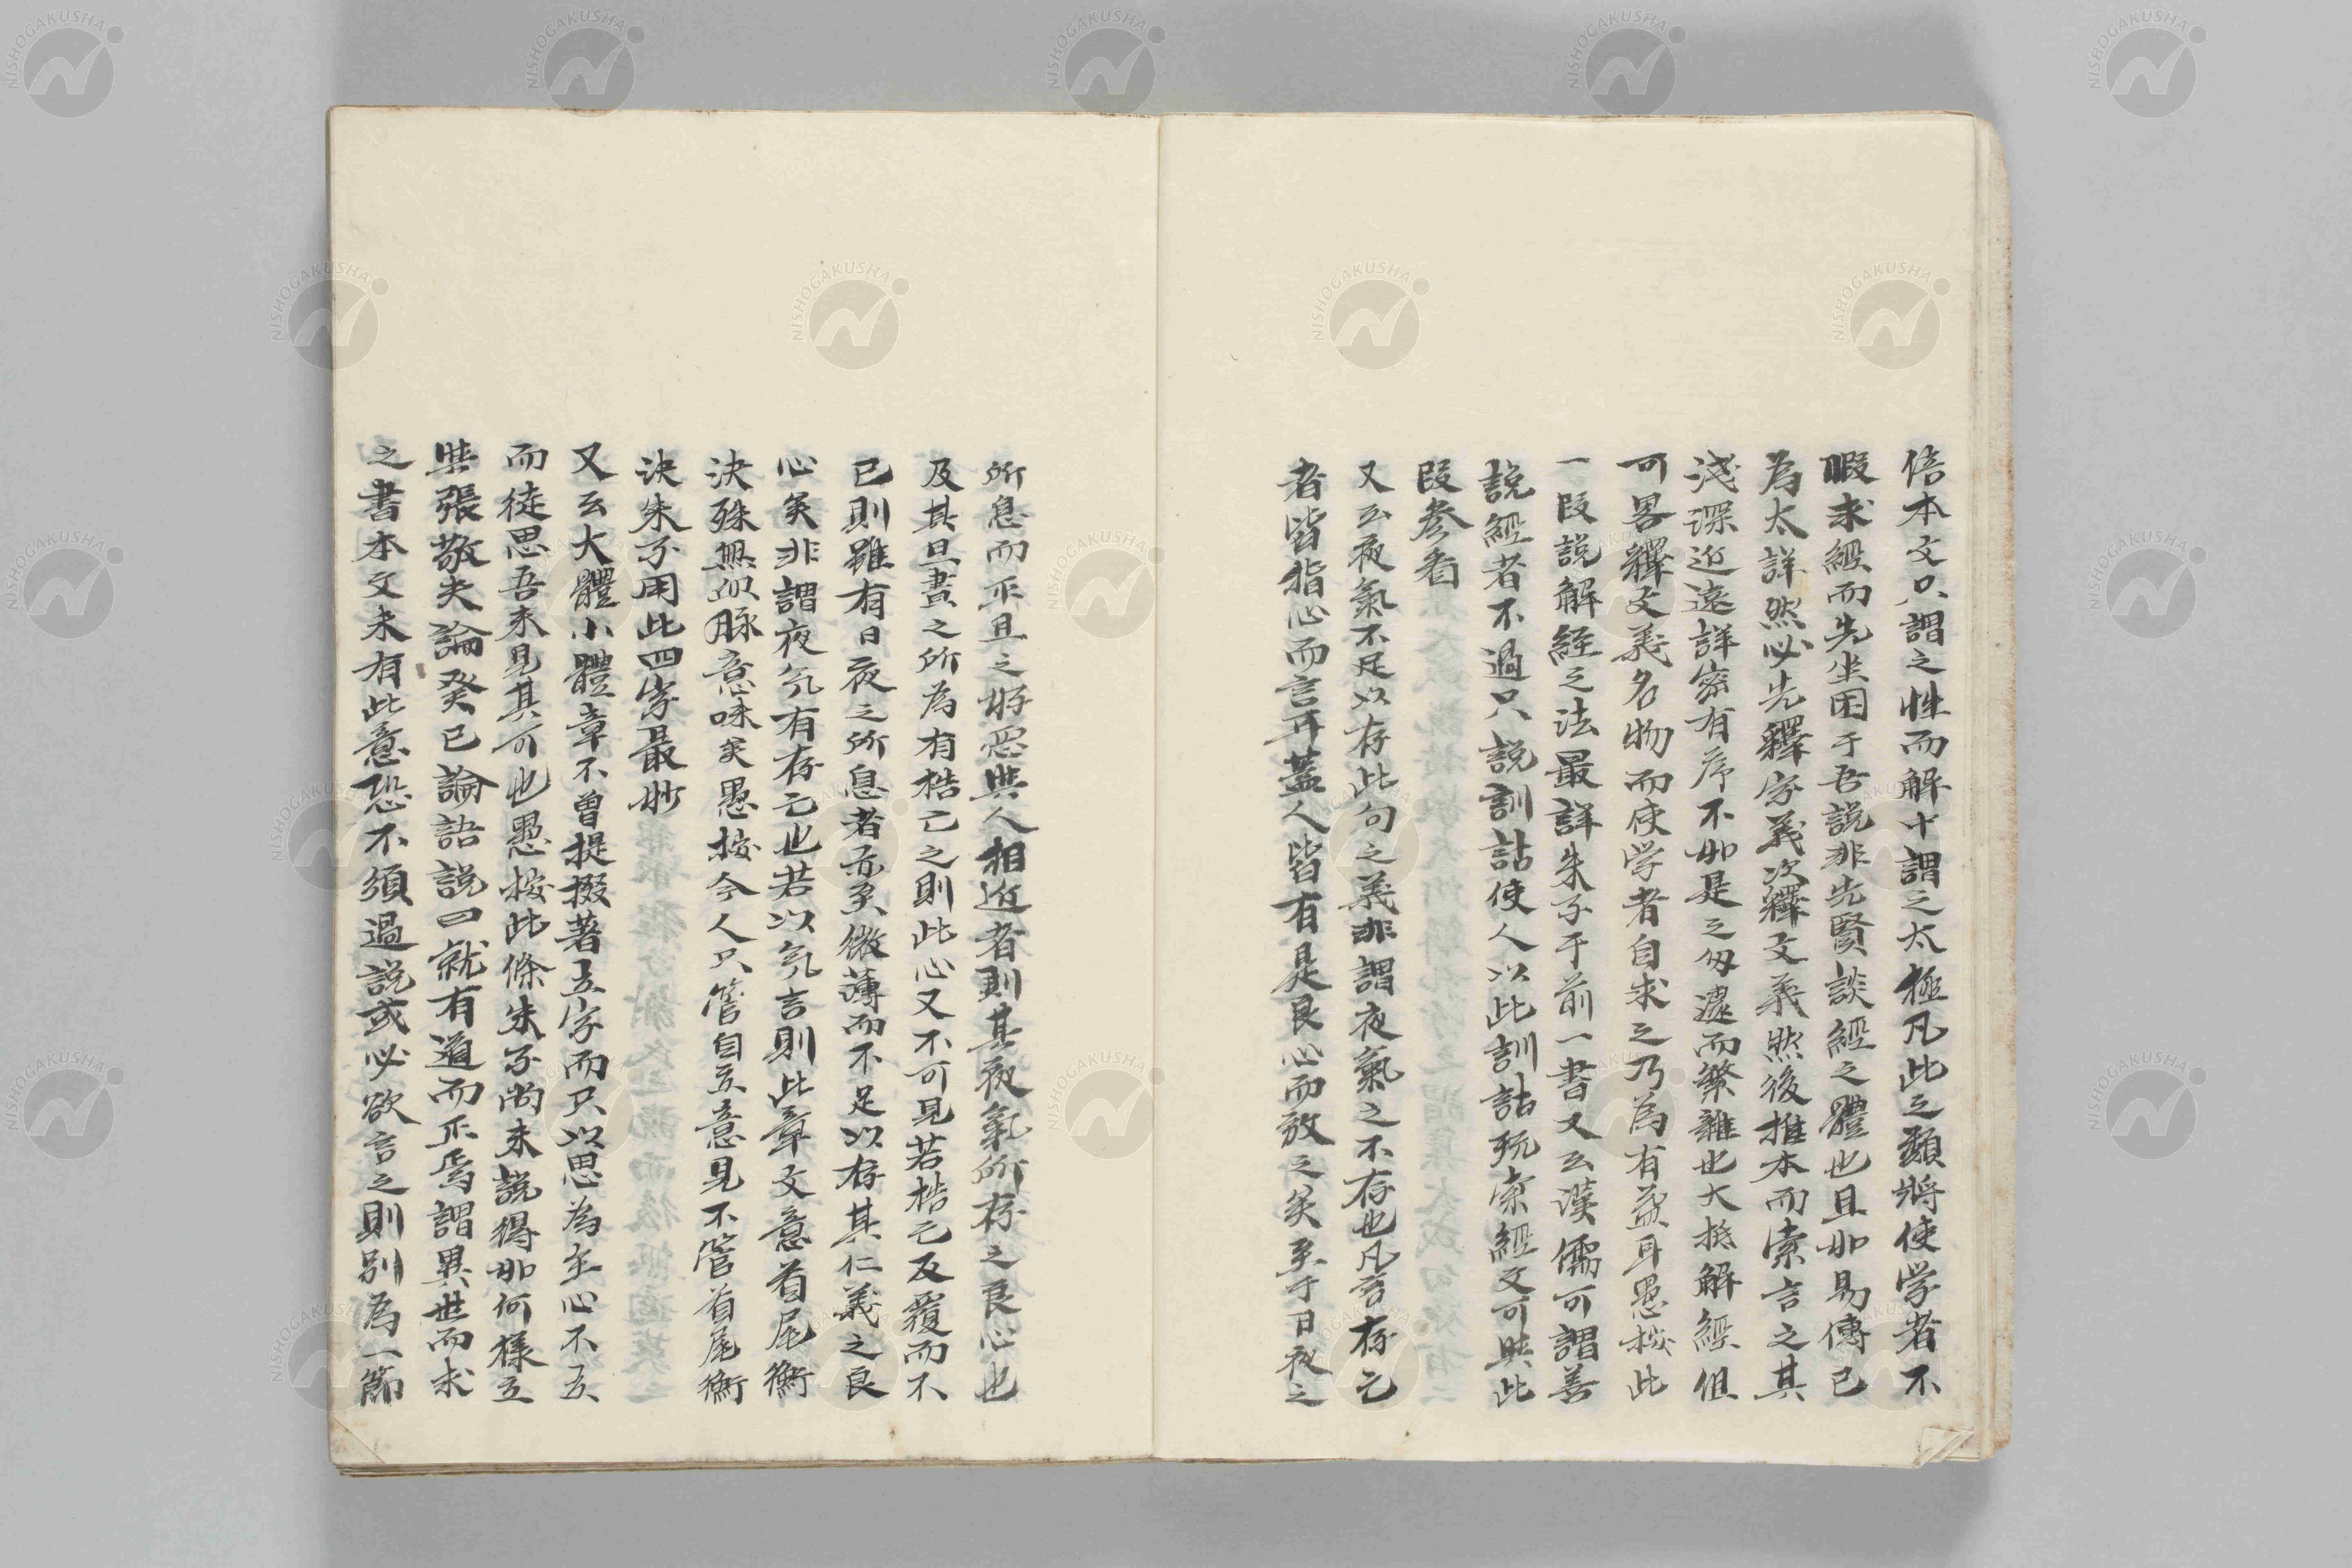 倍本文只謂之性而解十謂之太極凡此之類將使学者不
暇求經而先坐困于吾説非先賢談經之體也且如易傳已
為太詳然必先釋字義次釋文義然後推本而索言之其
淺深近遠詳密有序不如是之匆遽而繁雜也大抵解經但
可畧釋文義名物而使学者自求之乃為有益耳愚按此
一段説解經之法最詳朱子于前一書又云漢儒可謂善
説經者不過只説訓詁使人以此訓詁玩索經文可與此
段参看
又云夜氣不足以存此句之義非謂夜氣之不存也凡言存亡
者皆指心而言耳蓋人皆有是良心而放之矣至于日夜之
所息而平旦之好惡與人相近者則其夜氣所存之良心也
及其旦晝之所為有梏亡之則此心又不可見若梏亡反覆而不
已則雖有日夜之所息者亦至微薄而不足以存其仁義之良
心矣非謂夜氣有存亡也若以氣言則此章文意首尾衡
決殊無血脉意味矣愚按今人只管自立意見不管首尾衡
決朱子用此四字最妙
又云大體小體章不曾提掇著立字而只以思為主心不立
而徒思吾未見其可也愚按此條朱子尚未説得如何樣立
與張敬夫論癸巳論語説曰就有道而正焉謂異世而求
之書本文未有此意恐不須過説或必欲言之則別為一節
NISHOGAKUSHA